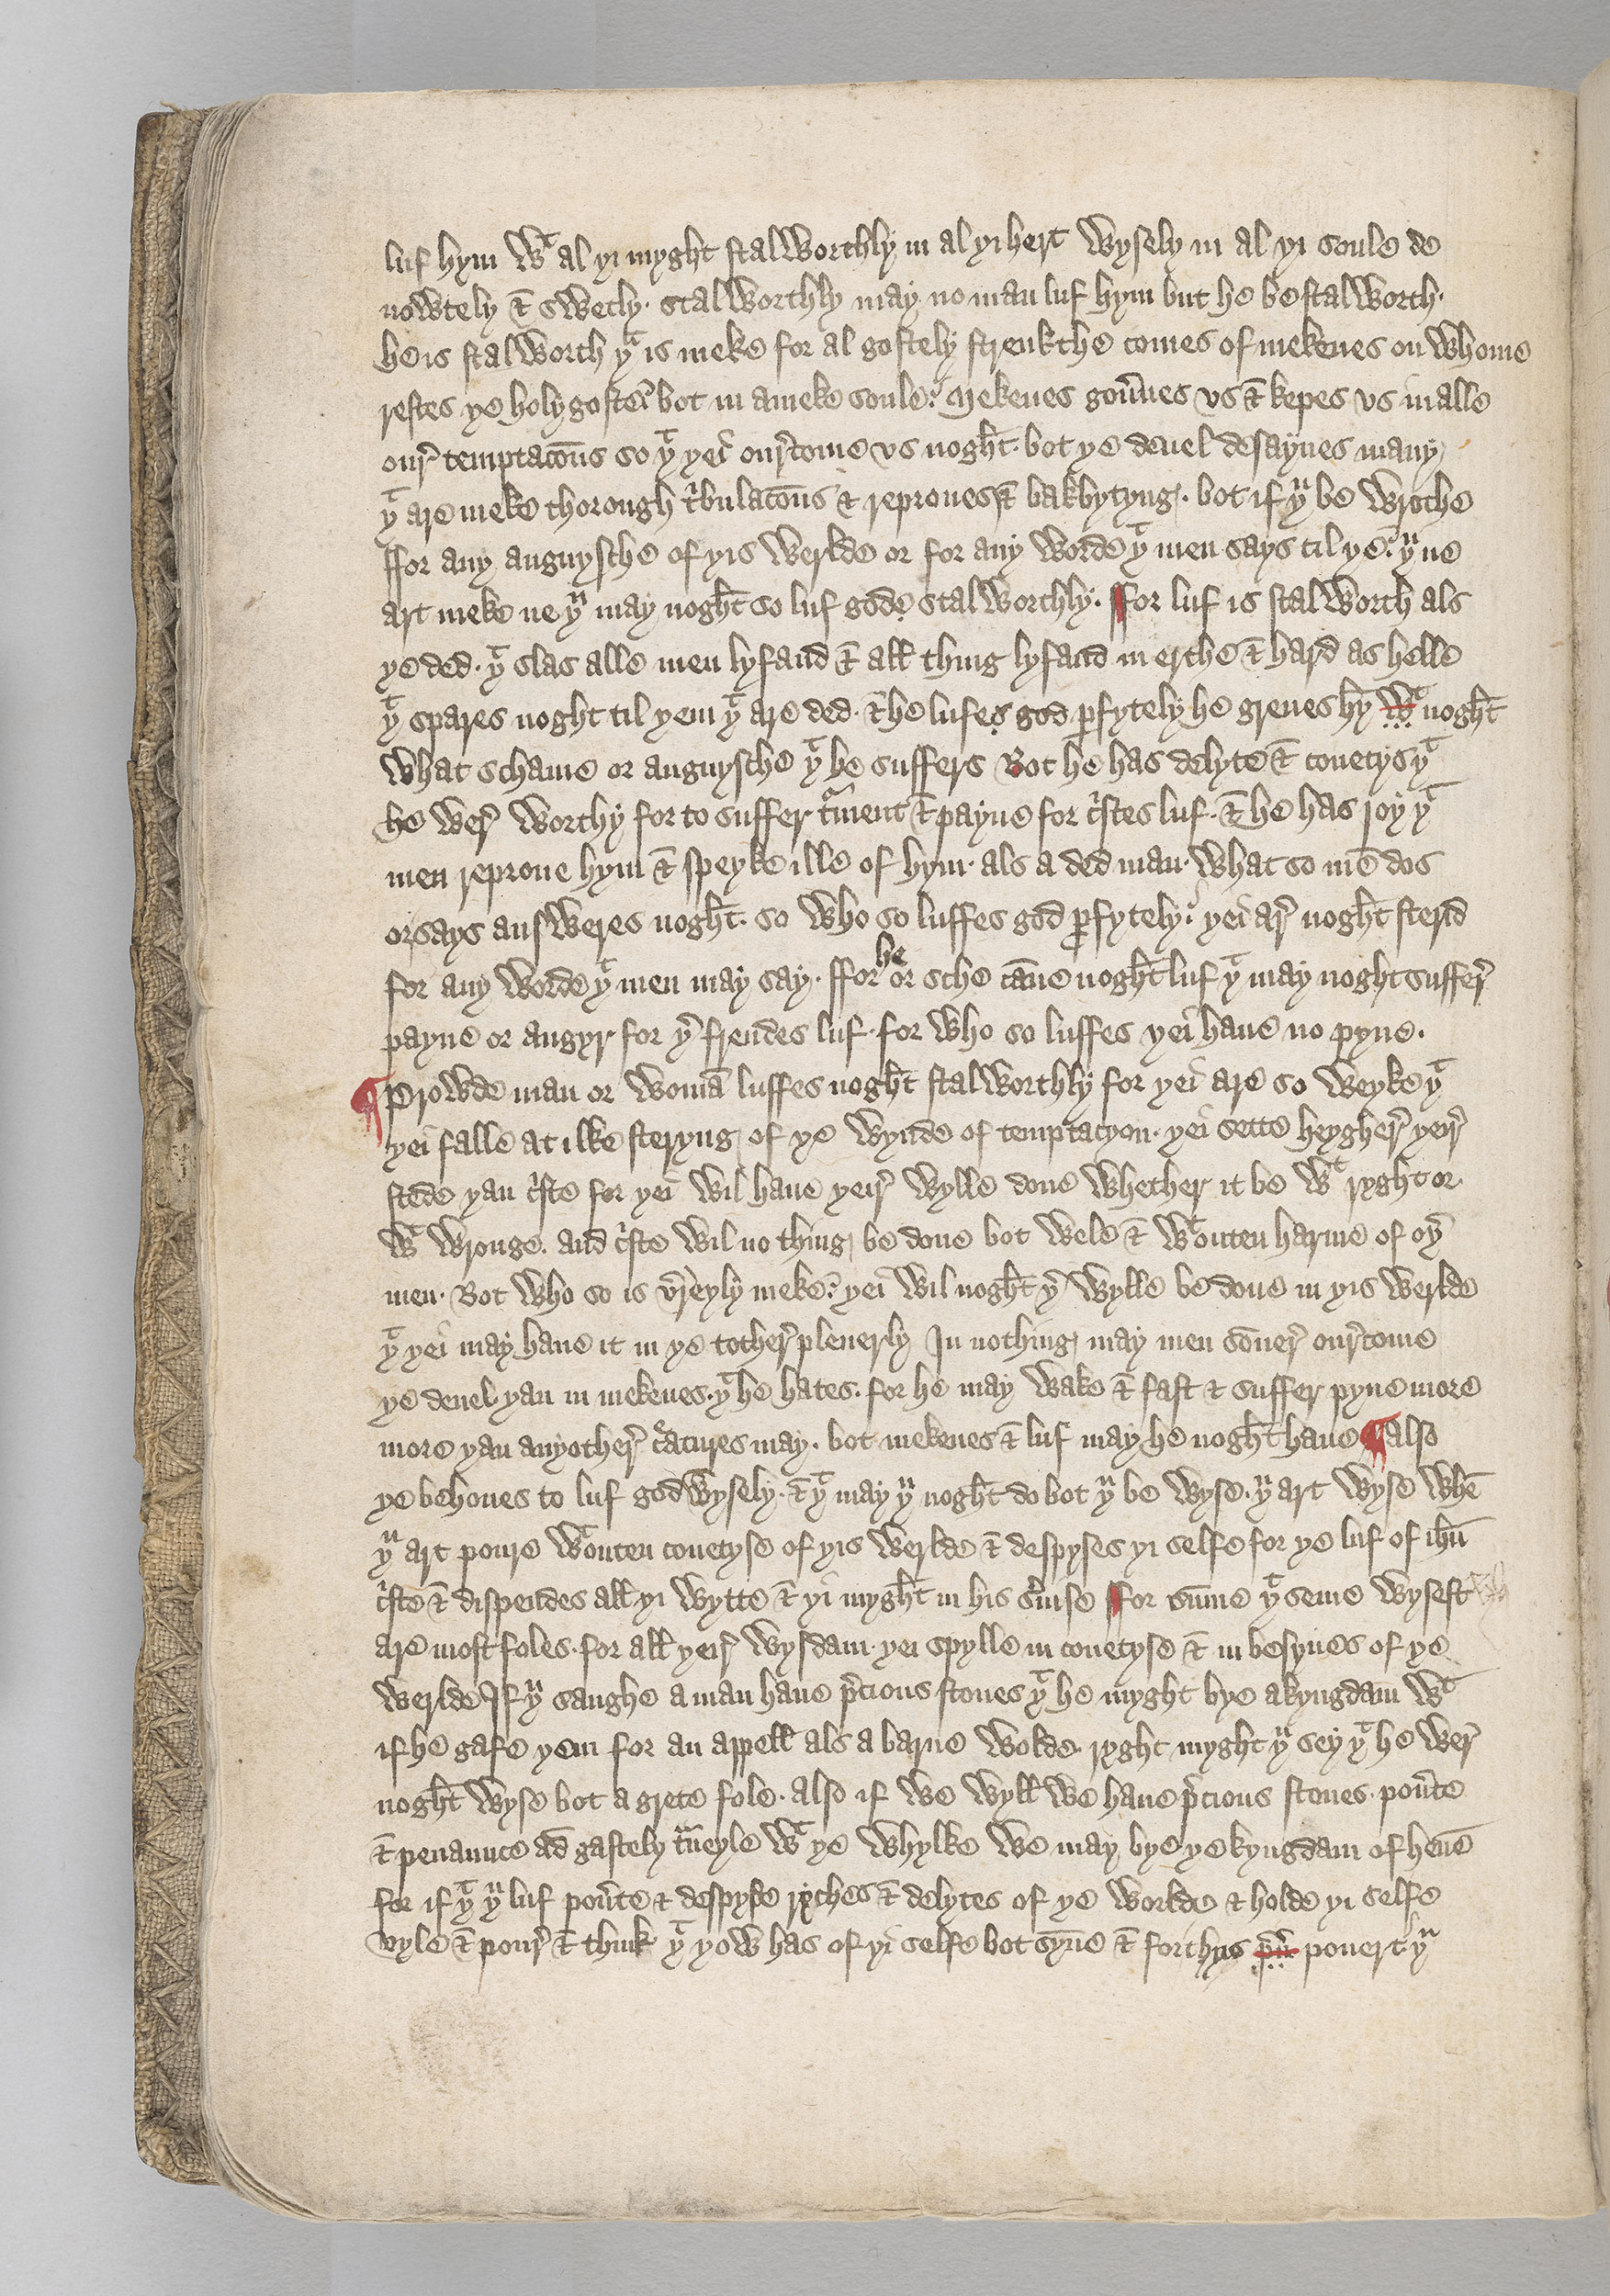 luf hym wᵗ al yi myght stalworthly in al yi hert wysely in al yi soule de
uowtely & swetly · stalworthly may no man luf hym but he be stalworth ·
he is stalworth yᵗ is meke for al gostely strenkthe comes of mekenes on whome
restes ye holy goste bot in a meke soule : Mekenes gou̾nes vs & kepes vs in alle
our̾ temptaco̅ns so yᵗ yei our̾come vs nogħt · bot ye deuel desaynes many
yᵗ are meke thorough tⁱbulaco̅ns & reproues & bakbytyng · bot if yᵘ be wrothe
ffor any anguysche of yis werlde or for any worde yᵗ men says til ye : yᵘ ne
art meke ne yᵘ may nogħt so luf gode stalworthly · ffor luf is stalworth als
ye ded · yᵗ slas alle men lyfand & all thing lyfand in erthe & hard as helle
yᵗ spares noght til yem yᵗ are ded · & he lufes god p̱fytely he greues hȳ wᵗ nogħt
what schame or anguysche yᵗ he suffers Bot he has delyte & couetys yᵗ
he wer̾ worthy for to suffer tᵒment & payne for cⁱstes luf · & he has joy yᵗ
men reproue hym & speyke ille of hym · als a ded man · what so me̅ dos
or says answeres nogħt · so who so luffes god p̱fytely : yei ar̾ nogħt sterid
for any worde yᵗ men may say · ffor he or sche ca̅ne nogħt luf yᵗ may noght suffer̾
payne or angyr for yr̾ frendes luf · for who so luffes yei haue no pyne .
¶ Prowde man or woma̅ luffes nogħt stalworthly for yei are so weyke yᵗ
yei falle at ilke steryng of ye wynde of temptacyon · yei sette heygher̾ yeir̾
stede yan cⁱste for yei wil haue yeir̾ wylle done whether it be wᵗ ryght or
wᵗ wronge . and cⁱste wil no thing be done bot wele & wᵗouten harme of oy̾
men · Bot who so is v̾reyly meke : yei wil nogħt yr̾ wylle be done in yis werlde
yᵗ yei may haue it in ye tother̾ plenerly In nothing may men so̅ner̾ our̾come
ye deuel yan in mekenes · yᵗ he hates . for he may wake & fast & suffer pyne more
more yan any other̾ cᵉatures may . bot mekenes & luf may he nogħt haue ¶ also
ye behoues to luf god wysely · & yᵗ may yᵘ nogħt do bot yᵘ be wyse . yᵘ art wyse whe̅
yᵘ art poure wᵗouten couetyse of yis werlde & despyses yi selfe for ye luf of ihu̅
cⁱste & dispendes all yi wytte & yi myght in his s̾uise ffor su̅me yᵗ seme wysest
are most foles · for all yeir̾ wysdam · yei spylle in couetyse & in besynes of ye
werlde If yᵘ saughe a man haue p̾cious stones yᵗ he myght bye a kyngdam wᵗ
if he gafe yem for an appell als a barne wolde . ryght myght yᵘ sey yᵗ he wer̾
nogħt wyse bot a grete fole · also if we wyll we haue p̾cious stones · pou̾te
& penaunce ad̅ gastely tᵃueyle wᵗ ye whylke we may bye ye kyngdam of heue̅
for if yᵗ yᵘ luf pou̾te & despyse ryches & delytes of ye worlde & holde yi selfe
vyle & pour̾ & think yᵗ yow has of yi selfe bot sy̅ne & for thys pou̾ pouert yᵘ